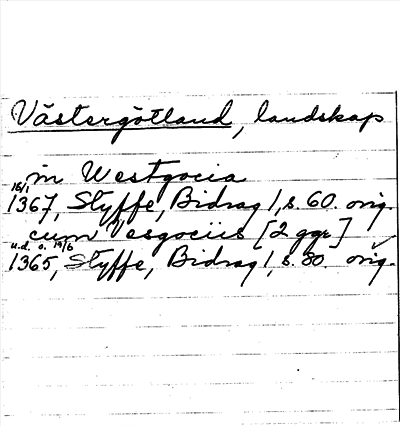 Västergötland, landskap
in Westgocia
16/1
1367, Styffe, Bidrag 1, s. 60. orig.
cum Vesgociis [2 ggr]
u.d. o. 19/6
1365, Styffe, Bidrag 1, s. 80. orig.